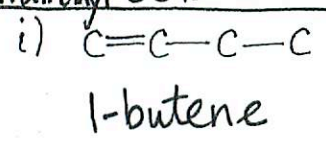 i) C=C—C—C
1-butene